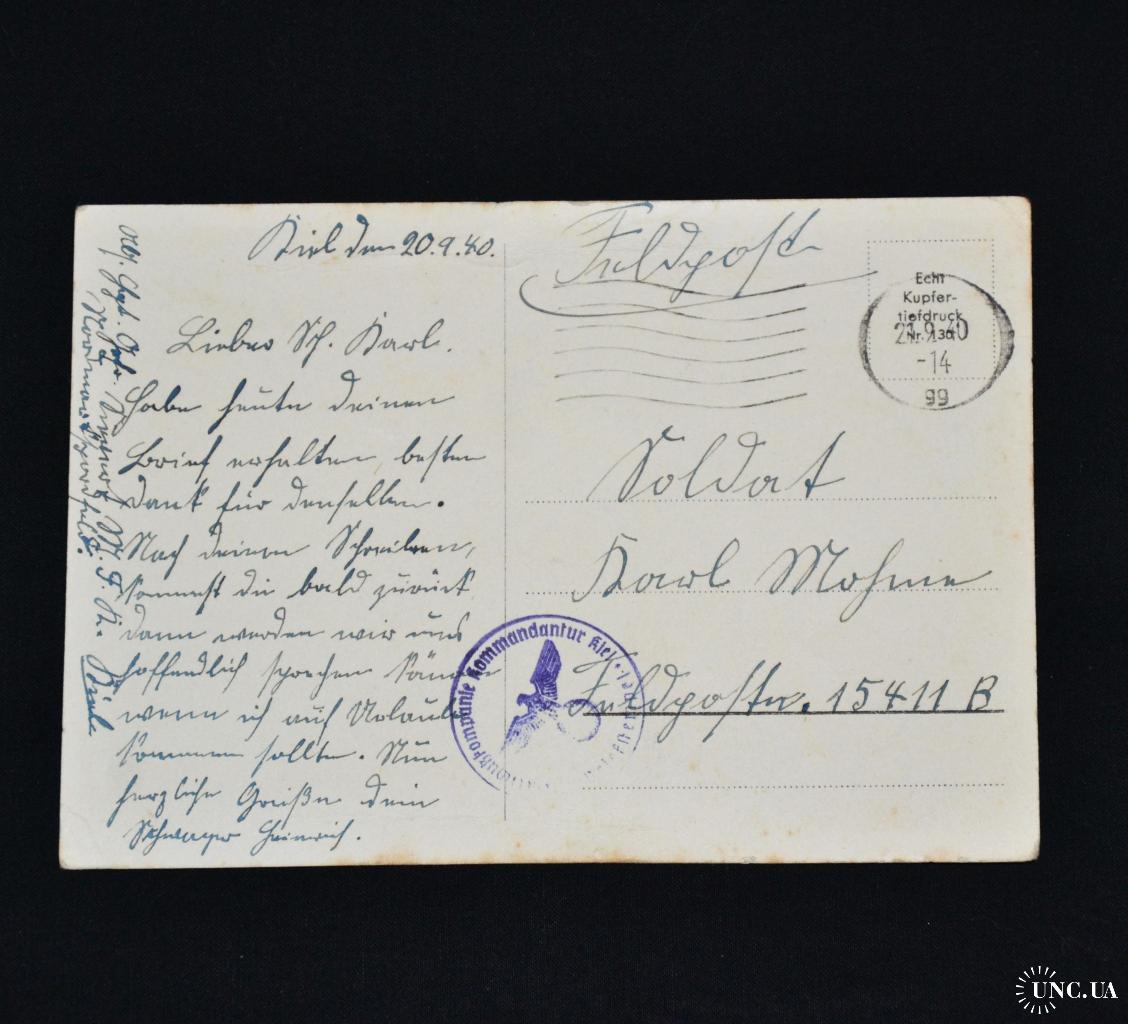 Kiel den 20.9.40.
Lieber Sch. Karl.
Habe heute deinen
Brief erhalten, besten
Dank für denselben.
Nach deinem Schreiben,
kommst du bald zurück
dann werden wir uns
hoffendlich sprechen
wenn ich auf Urlaub
kommen sollte. Nun
herzliche Grüße dein
Schwager Heinrich.
Abs. Gefr.
M. S. K.
Kiel
Feldpost
Echt
Kupfer-
tiefdruck
21.9.40
-14
99
Soldat
Karl Mohme
Feldpostnr. 15411 B
Kommandantur Kiel
UNC.UA